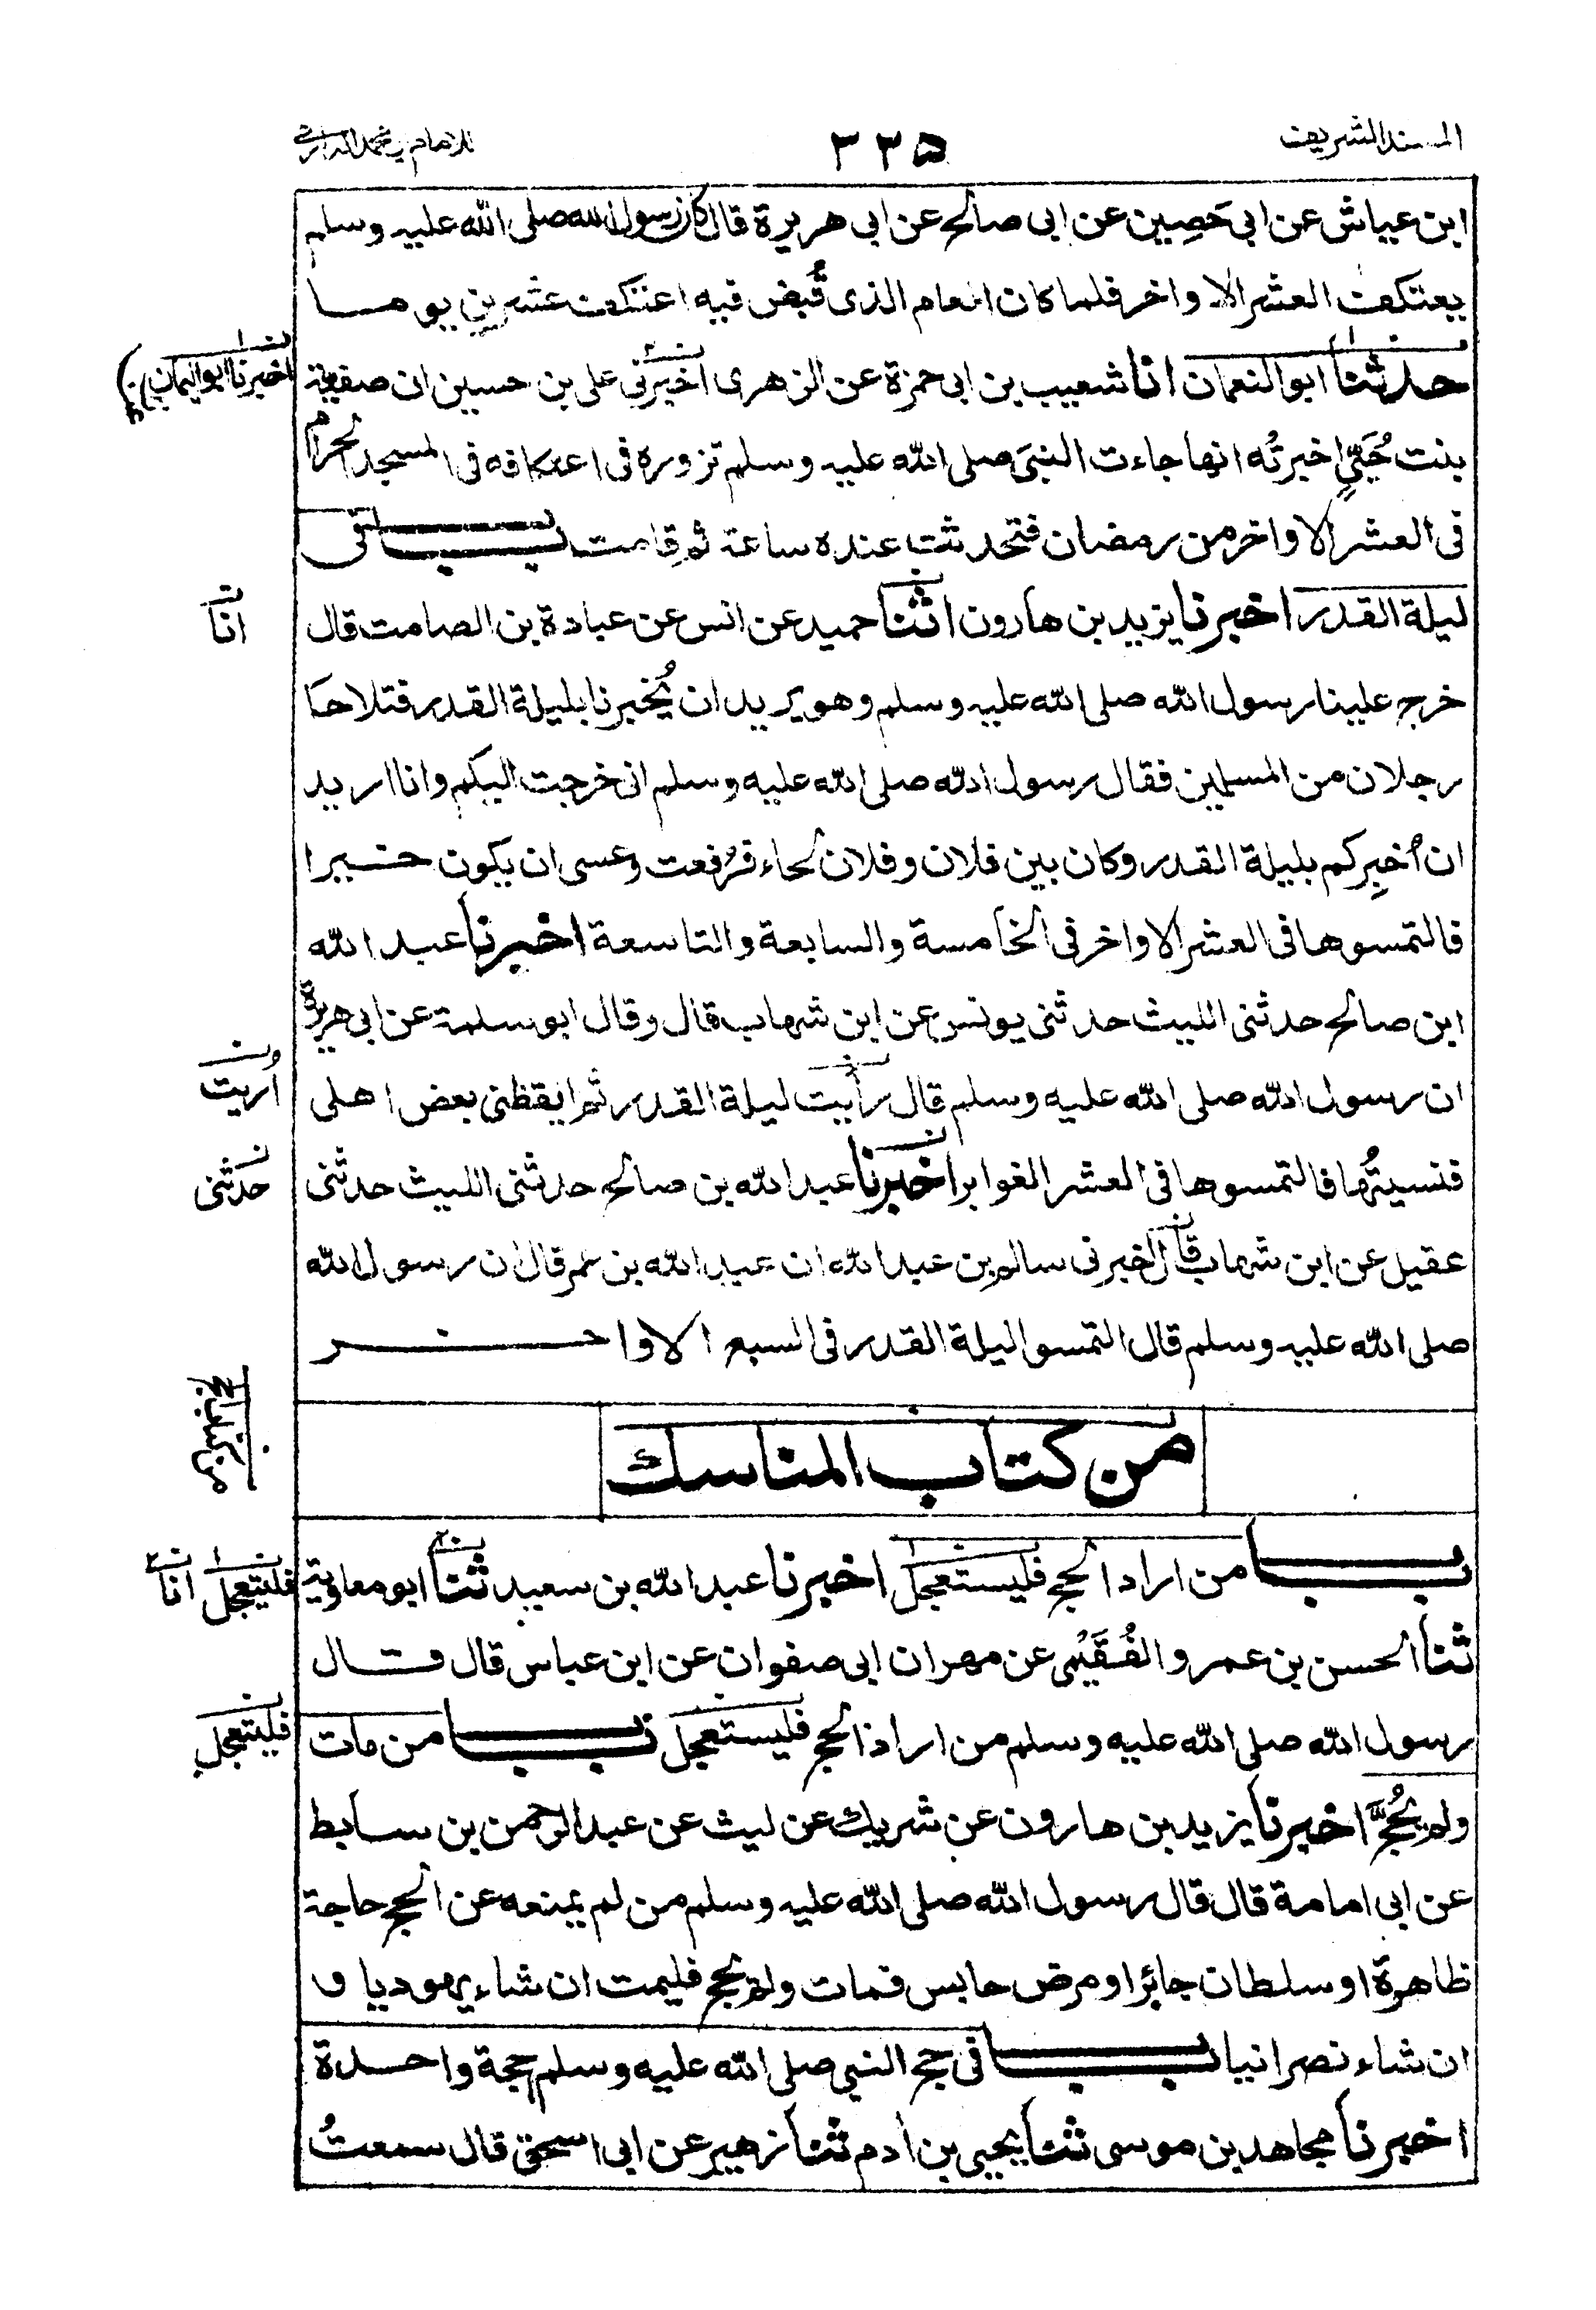 المسند الشريف
٣٣٥
للامام ابى محمد الدارمى
ابن عياش عن ابى حَصِين عن ابى صالح عن ابى هريرة قال كان رسول الله صلى الله عليه وسلم
يعتكف العشر الاواخر فلما كان العام الذى قُبض فيه اعتكف عشرين يوما
حدثنا ابو النعمان انا شعيب بن ابى حمزة عن الزهرى اخبرنى على بن حسين ان صفية
اخبرنا ابو اليمان
بنت حُيَىٍّ اخبرتُه انها جاءت النبىَ صلى الله عليه وسلم تزوره فى اعتكافه فى المسجد الحرام
فى العشر الاواخر من رمضان فتحدثت عنده ساعة ثم قامت باب فى
ليلة القدر اخبرنا يزيد بن هارون اثنا حميد عن انس عن عبادة بن الصامت قال
انا
خرج علينا رسول الله صلى الله عليه وسلم وهو يريد ان يُخبرنا بليلة القدر فتلاحَا
رجلان من المسلمين فقال رسول الله صلى الله عليه وسلم انى خرجت اليكم وانا اريد
ان اُخبِركم بليلة القدر وكان بين فلان وفلان لحاء فرُفعت وعسى ان يكون خيرا
فالتمسوها فى العشر الاواخر فى الخامسة والسابعة والتاسعة اخبرنا عبد الله
ابن صالح حدثنى الليث حدثنى يونس عن ابن شهاب قال وقال ابو سلمة عن ابى هريرة
ان رسول الله صلى الله عليه وسلم قال رأيت ليلة القدر ثم ايقظنى بعض اهلى
اُريت
فنسيتُها فالتمسوها فى العشر الغوابر اخبرنا عبد الله بن صالح حدثنى الليث حدثنى
حدثنى
عقيل عن ابن شهاب قال اخبرنى سالم بن عبد الله ان عبد الله بن عمر قال ان رسول الله
صلى الله عليه وسلم قال التمسوا ليلة القدر فى السبع الاواخر
من كتاب المناسك
من كتاب الحج
باب من اراد الحج فليستعجل اخبرنا عبد الله بن سعيد ثنا ابو معاوية
فليتعجل انا
ثنا الحسن بن عمرو الفُقَيْمى عن مهران ابى صفوان عن ابن عباس قال قال
رسول الله صلى الله عليه وسلم من اراد الحج فليستعجل باب من مات
فليتعجل
ولم يحُجَّ اخبرنا يزيد بن هارون عن شريك عن ليث عن عبد الرحمن بن سابط
عن ابى امامة قال قال رسول الله صلى الله عليه وسلم من لم يمنعه عن الحج حاجة
ظاهرة او سلطان جائر او مرض حابس فمات ولم يحج فليمت ان شاء يهوديا و
ان شاء نصرانيا باب فى حج النبى صلى الله عليه وسلم حجة واحدة
اخبرنا مجاهد بن موسى ثنا يحيى بن ادم ثنا زهير عن ابى اسحق قال سمعتُ